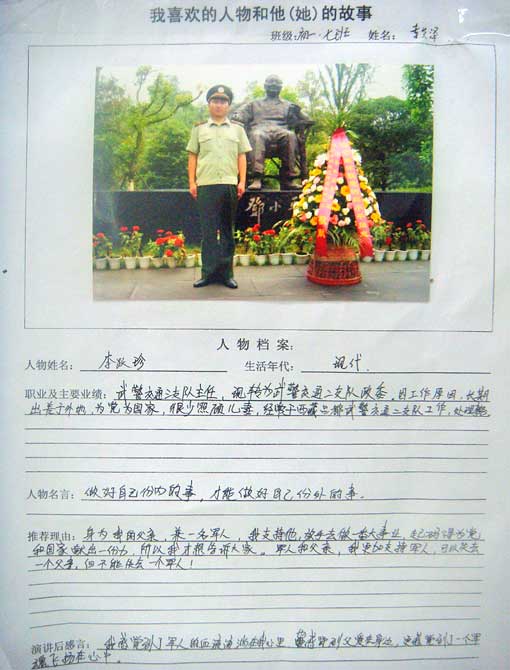 我喜欢的人物和他(她)的故事
班级:初一·七班 姓名:
鄧小
人 物 档 案:
人物姓名: 李 珍 生活年代: 现代.
职业及主要业绩: 武警交通三支队主任，现转为武警交通二支队政委，因工作原因，长期
出差于外地，为党为国家，很少照顾儿妻，经常于西藏 武警交通二支队工作，处理
人物名言: 做好自己份内的事，才能做好自己份外的事.
推荐理由: 身为我的父亲，兼一名军人，我支持他，放手去做一番大事业，
和国家献出一份力，所以我才想告诉大家。军人和父亲，我更加支持军人，可以失去
一个父亲，但不能失去一个军人！
演讲后感言: 我感觉到了军人的血液流淌在我心里， 感觉到了一个军
魂飞扬在心中。